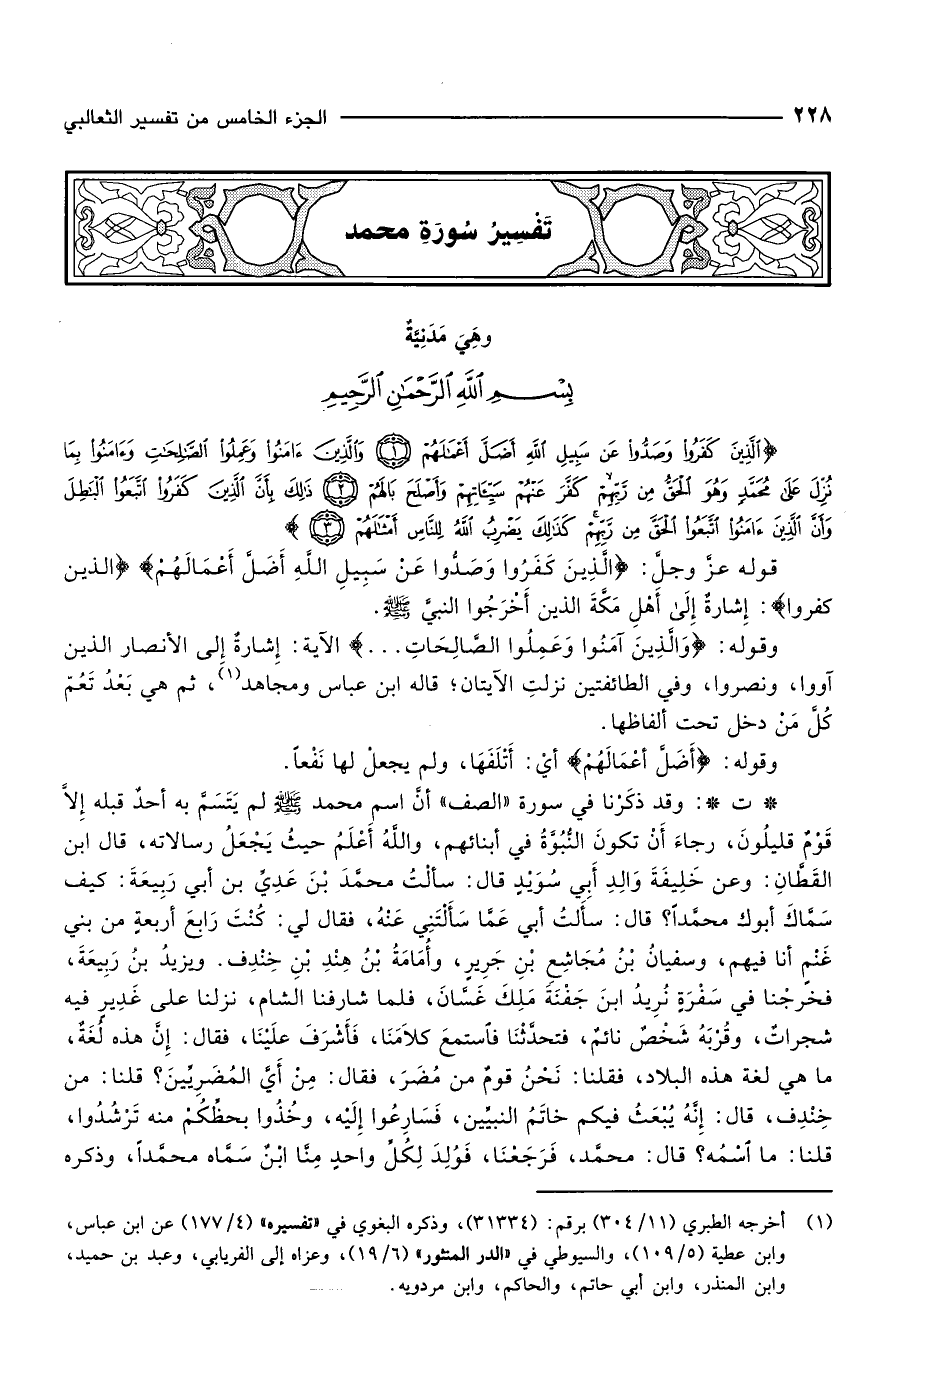 ٢٢٨ ــــــــــــــــ الجزء الخامس من تفسير الثعالبي
تَفْسِيرُ سُورَةِ محمد
وهِيَ مَدَنِيَّةٌ
بِسْمِ ٱللَّهِ ٱلرَّحْمَٰنِ ٱلرَّحِيمِ
﴿ٱلَّذِينَ كَفَرُوا۟ وَصَدُّوا۟ عَن سَبِيلِ ٱللَّهِ أَضَلَّ أَعْمَٰلَهُمْ ١ وَٱلَّذِينَ ءَامَنُوا۟ وَعَمِلُوا۟ ٱلصَّٰلِحَٰتِ وَءَامَنُوا۟ بِمَا
نُزِّلَ عَلَىٰ مُحَمَّدٍ وَهُوَ ٱلْحَقُّ مِن رَّبِّهِمْ ۙ كَفَّرَ عَنْهُمْ سَيِّـَٔاتِهِمْ وَأَصْلَحَ بَالَهُمْ ٢ ذَٰلِكَ بِأَنَّ ٱلَّذِينَ كَفَرُوا۟ ٱتَّبَعُوا۟ ٱلْبَٰطِلَ
وَأَنَّ ٱلَّذِينَ ءَامَنُوا۟ ٱتَّبَعُوا۟ ٱلْحَقَّ مِن رَّبِّهِمْ ۚ كَذَٰلِكَ يَضْرِبُ ٱللَّهُ لِلنَّاسِ أَمْثَٰلَهُمْ ٣﴾
قوله عزَّ وجلَّ: ﴿الَّذِينَ كَفَرُوا وَصَدُّوا عَنْ سَبِيلِ اللَّهِ أَضَلَّ أَعْمَالَهُمْ﴾ ﴿الذين
كفروا﴾: إشارةٌ إلَىٰ أَهْلِ مَكَّةَ الذين أَخْرَجُوا النبيَّ ﷺ.
وقوله: ﴿وَالَّذِينَ آمَنُوا وَعَمِلُوا الصَّالِحَاتِ...﴾ الآية: إشارةٌ إلى الأنصار الذين
آووا، ونصروا، وفي الطائفتين نزلتِ الآيتان؛ قاله ابن عباس ومجاهد(١)، ثم هي بَعْدُ تَعُمّ
كُلَّ مَنْ دخل تحت ألفاظها.
وقوله: ﴿أَضَلَّ أَعْمَالَهُمْ﴾ أيْ: أَتْلَفَهَا، ولم يجعلْ لها نَفْعاً.
* ت *: وقد ذكَرْنا في سورة «الصف» أنَّ اسم محمد ﷺ لم يَتَسَمَّ به أحدٌ قبله إلاَّ
قَوْمٌ قليلُونَ، رجاءَ أَنْ تكونَ النُّبُوَّةُ في أبنائهم، واللَّهُ أَعْلَمُ حيثُ يَجْعَلُ رسالاته، قال ابن
القَطَّانِ: وعن خَلِيفَةَ وَالِدِ أَبِي سُوَيْدٍ قال: سألْتُ محمَّدَ بْنَ عَدِيِّ بن أبي رَبِيعَةَ: كيف
سَمَّاكَ أبوك محمَّداً؟ قال: سأَلْتُ أبي عَمَّا سَأَلْتَنِي عَنْهُ، فقال لي: كُنْتَ رَابِعَ أربعةٍ من بني
غَنْمٍ أنا فيهم، وسفيانُ بْنُ مُجَاشِعِ بْنِ جَرِيرٍ، وأُمَامَةُ بْنُ هِنْدِ بْنِ خِنْدِف. ويزيدُ بنُ رَبِيعَةَ،
فخرجْنا في سَفْرَةٍ نُرِيدُ ابنَ جَفْنَةَ مَلِكَ غَسَّانَ، فلما شارفنا الشام، نزلنا على غَدِيرٍ فيه
شجراتٌ، وقُرْبَهُ شَخْصٌ نائمٌ، فتحدَّثْنا فٱستمعَ كلاَمَنَا، فَأَشْرَفَ علَيْنَا، فقال: إنَّ هذه لُغَةٌ،
ما هي لغة هذه البلاد، فقلنا: نَحْنُ قومٌ من مُضَرَ، فقال: مِنْ أيِّ المُضَرِيِّينَ؟ قلنا: من
خِنْدِف، قال: إنَّهُ يُبْعَثُ فيكم خاتَمُ النبيِّين، فَسَارِعُوا إلَيْه، وخُذُوا بحظِّكُمْ منه تَرْشُدُوا،
قلنا: ما ٱسْمُه؟ قال: محمَّد، فَرَجَعْنَا، فَوُلِدَ لِكُلِّ واحدٍ مِنَّا ابْنٌ سَمَّاه محمَّداً، وذكره
(١) أخرجه الطبري (١١/ ٣٠٤) برقم: (٣١٣٣٤)، وذكره البغوي في «تفسيره» (٤/ ١٧٧) عن ابن عباس،
وابن عطية (٥/ ١٠٩)، والسيوطي في «الدر المنثور» (٦/ ١٩)، وعزاه إلى الفريابي، وعبد بن حميد،
وابن المنذر، وابن أبي حاتم، والحاكم، وابن مردويه.